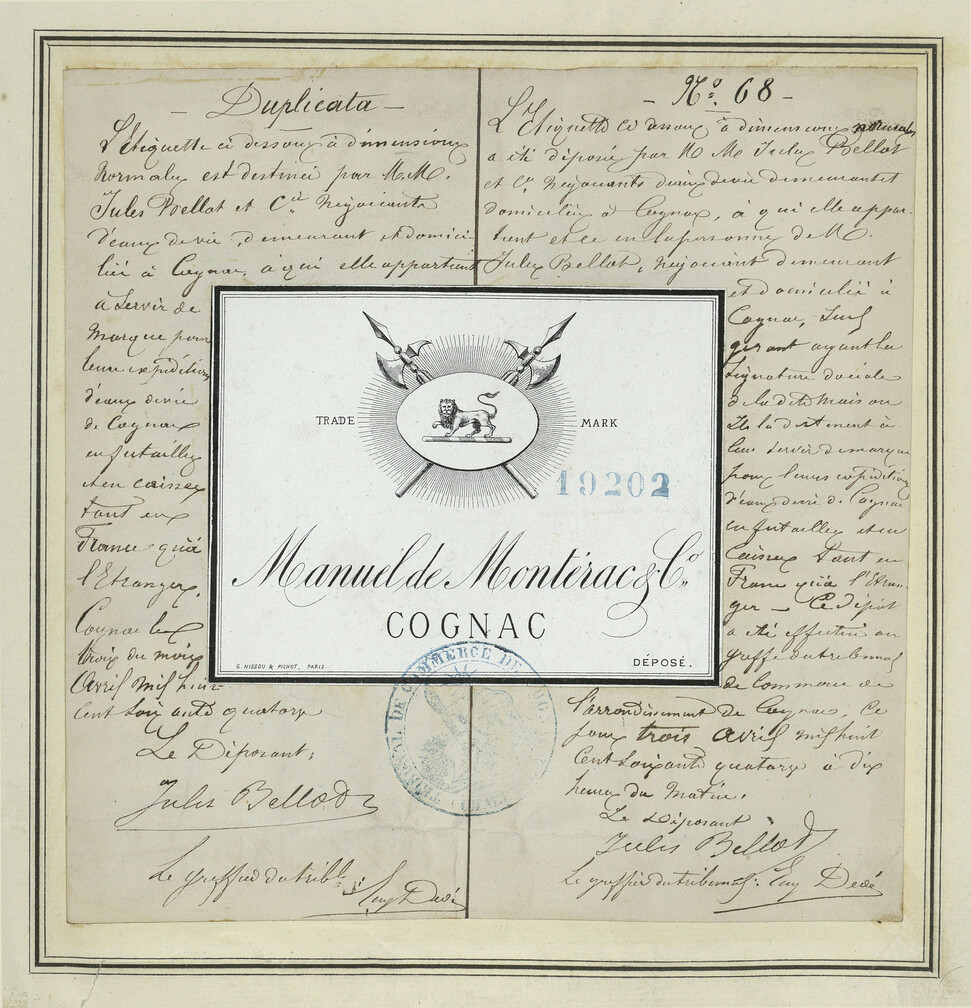 — Duplicata —
L'Etiquette ci dessous à dimensions
Normales est destinée par M.M.
Jules Bellot et Cie Négociants
d'eaux de vie, demeurant et domici-
lié à Cognac, à qui elle appartient
à servir de
Marque pour
leurs expéditions
d'eaux de vie
de Cognac
en futailles
et en caisses
tant en
France qu'à
l'Etranger.
Cognac le
trois du mois
Avril mil huit
cent soixante quatorze
Le Déposant;
Jules Bellot
Le greffier du tribl.
— No. 68 —
L'Etiquette ci dessous à dimensions normales
a été déposée par M M Jules Bellot
et Ce Négociants d'eaux de vie demeurant et
domiciliés à Cognac, à qui elle appar-
tient et ce en la personne de M.
Jules Bellot, Négociant demeurant
et domicilié à
Cognac, Seul
gérant ayant la
signature sociale
de la dite Maison
Ils la destinent à
leur servir de marque
pour leurs expéditions
d'eaux de vie de Cognac
en futailles et en
Caisses tant en
France qu'à l'étran-
ger — Ce dépôt
a été effectué au
greffe du tribunal
de Commerce de
l'arrondissement de Cognac Ce
jour trois Avril mil huit
Cent soixante quatorze à dix
heures du Matin.
Le Déposant
Jules Bellot
Le greffier du tribunal.
TRADE MARK
19202
Manuel de Montérac & Co.
COGNAC
G. NISSOU & PICHOT, PARIS.
DÉPOSÉ.
TRIBUNAL DE COMMERCE DE COGNAC